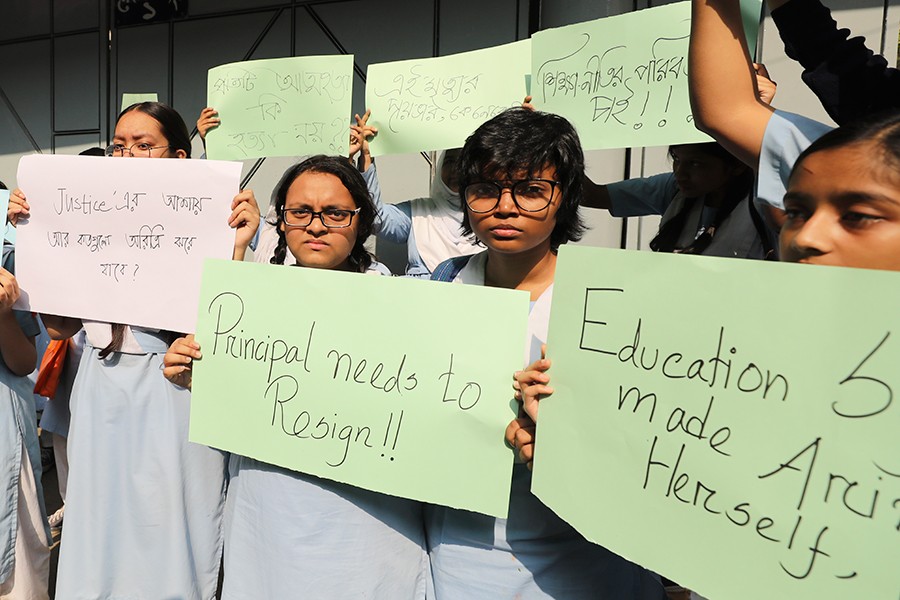 প্রতিটি আত্মহত্যা
কি
হত্যা নয়?
এই
শিক্ষানীতির পরিব
চাই!!
Justice'এর আশায়
আর কতগুলো অরিত্রি ঝরে
যাবে?
Principal needs to
Resign!!
Education s
made Ari
Herself,